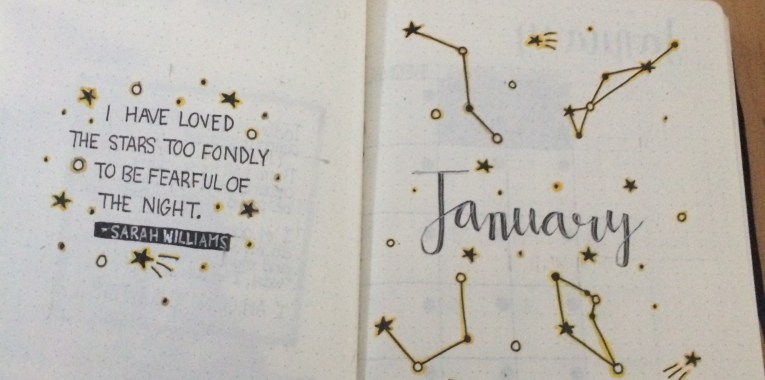 I HAVE LOVED
THE STARS TOO FONDLY
TO BE FEARFUL OF
THE NIGHT.
-SARAH WILLIAMS
January